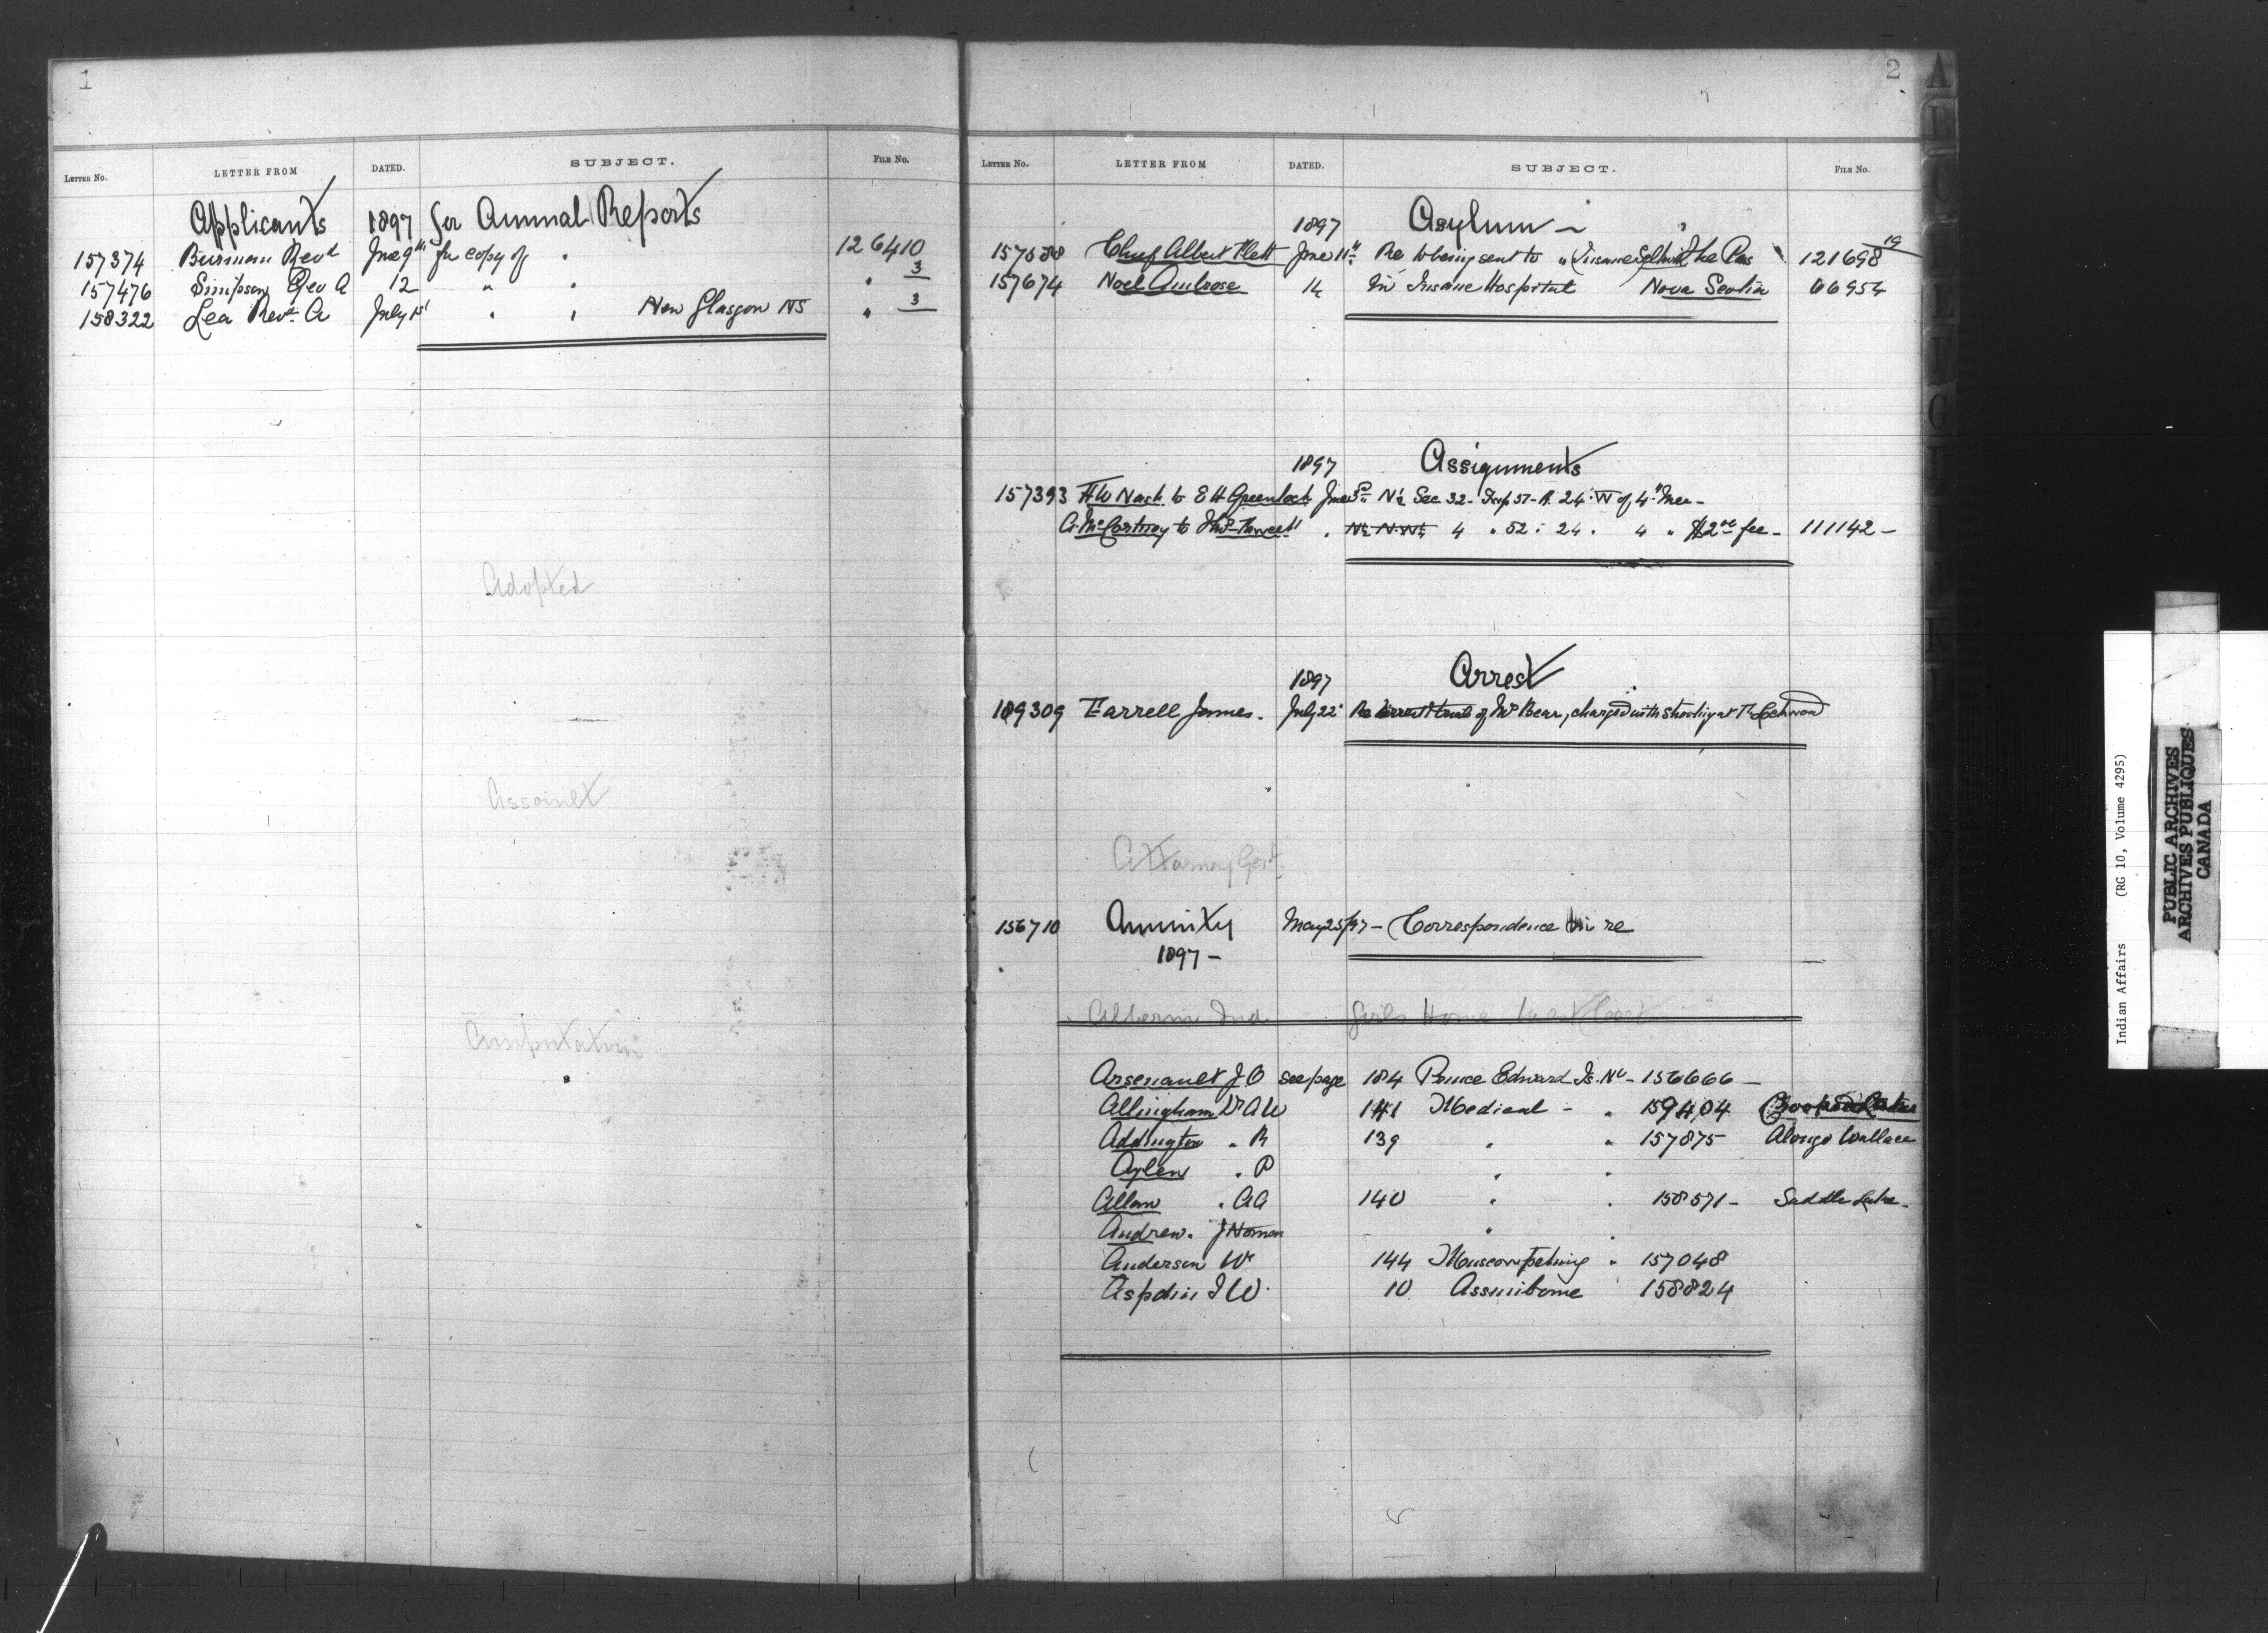 1
LETTER No. LETTER FROM DATED. SUBJECT. FILE No.
Applicants 1897 for Annual Reports
157374 Burman Revd June 9th for copy of " 126410
157476 Simpson Rev A 12 " " " 3
158322 Lea Revd A July 1st " " New Glasgow NS " 3
Adopted
Amputation
2
LETTER No. LETTER FROM DATED. SUBJECT. FILE No.
1897 Asylum
Chief Albert Flett June 11th Re to being sent to " The Pas 121698 19
157674 Noel Ambrose 14 In Insane Hospital Nova Scotia 66954
1897 Assignments
157393 HW Nash to E H Greenlock June N½ Sec 32- Twp 51- R. 24 W of 4th Mer-
A. McCartney to 4 " 52 " 24 " 4 " $2 00 fee - 111142 -
1897 Arrest
189309 Farrell James. July 22 of Bear, charged with shooting at
Attorney Genl
156710 Annuity May 25/97 - Correspondence in re
1897 -
Alberni Ind Girls Home West Coast
Arsenault J O see page 184 Prince Edward Is. No - 156666 -
Allingham Dr A W 141 Medical - " 159404
Addington " R 139 " " 157875 Alonzo Wallace
Aylen " P " "
Allan " AA 140 " " 158571 - Saddle Lake -
Andrew. J Homan " "
Anderson W 144 Muscowpetung " 157048
Aspdin J W. 10 Assiniboine 158824
A
Indian Affairs (RG 10, Volume 4295)
PUBLIC ARCHIVES
ARCHIVES PUBLIQUES
CANADA